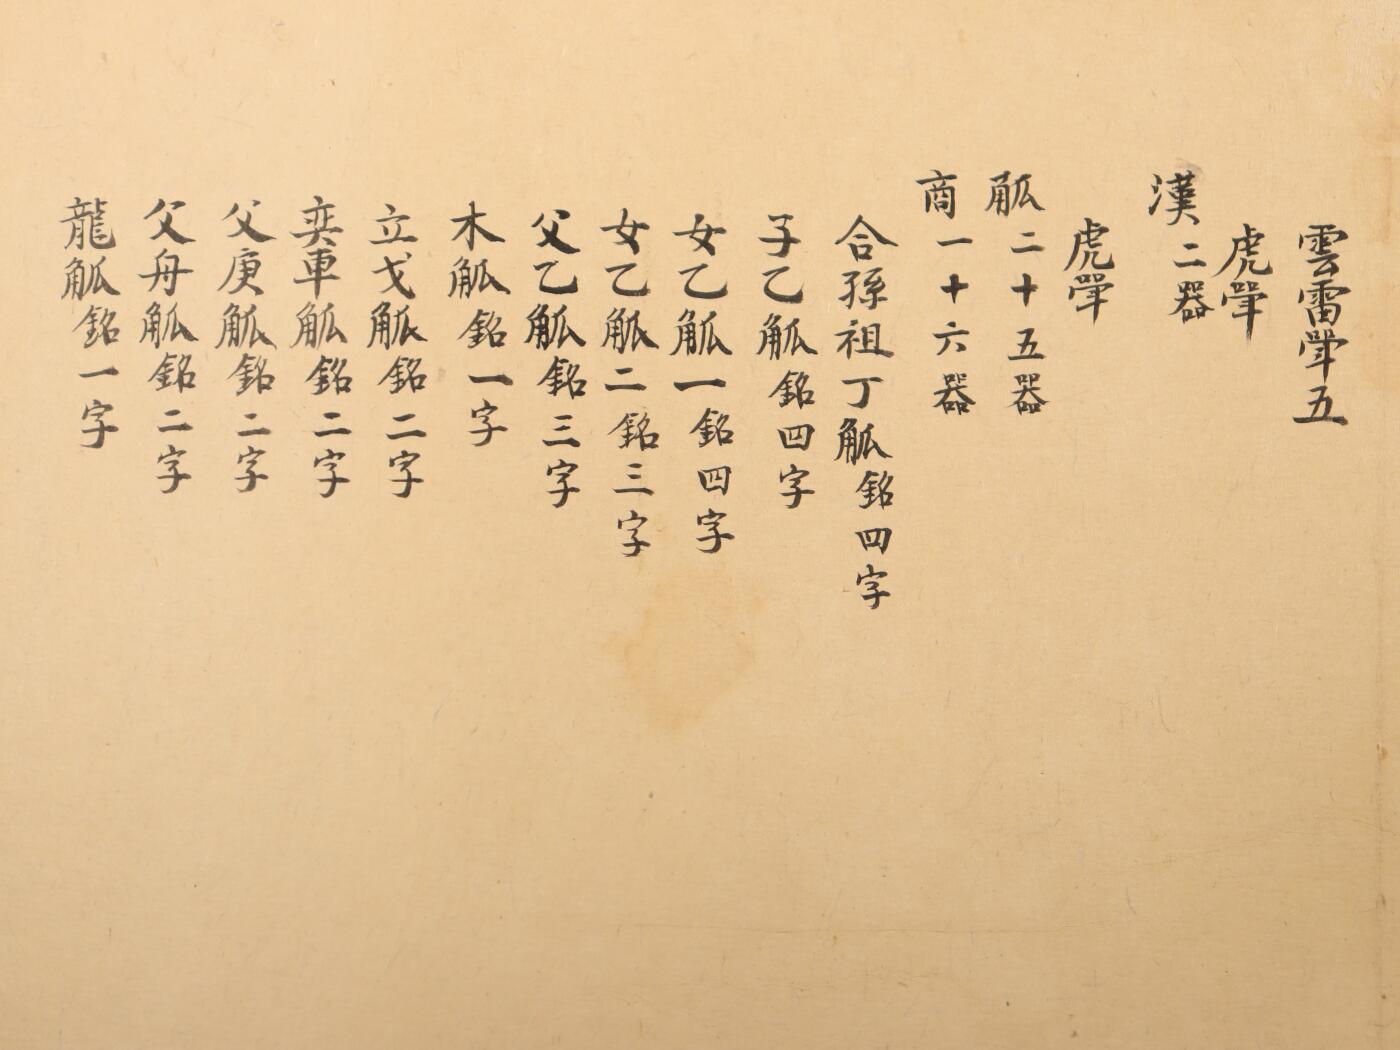 雲雷斝五
虎斝
漢二器
虎斝
觚二十五器
商一十六器
合孫祖丁觚銘四字
子乙觚銘四字
女乙觚一銘四字
女乙觚二銘三字
父乙觚銘三字
木觚銘一字
立戈觚銘二字
奕車觚銘二字
父庚觚銘二字
父舟觚銘二字
龍觚銘一字